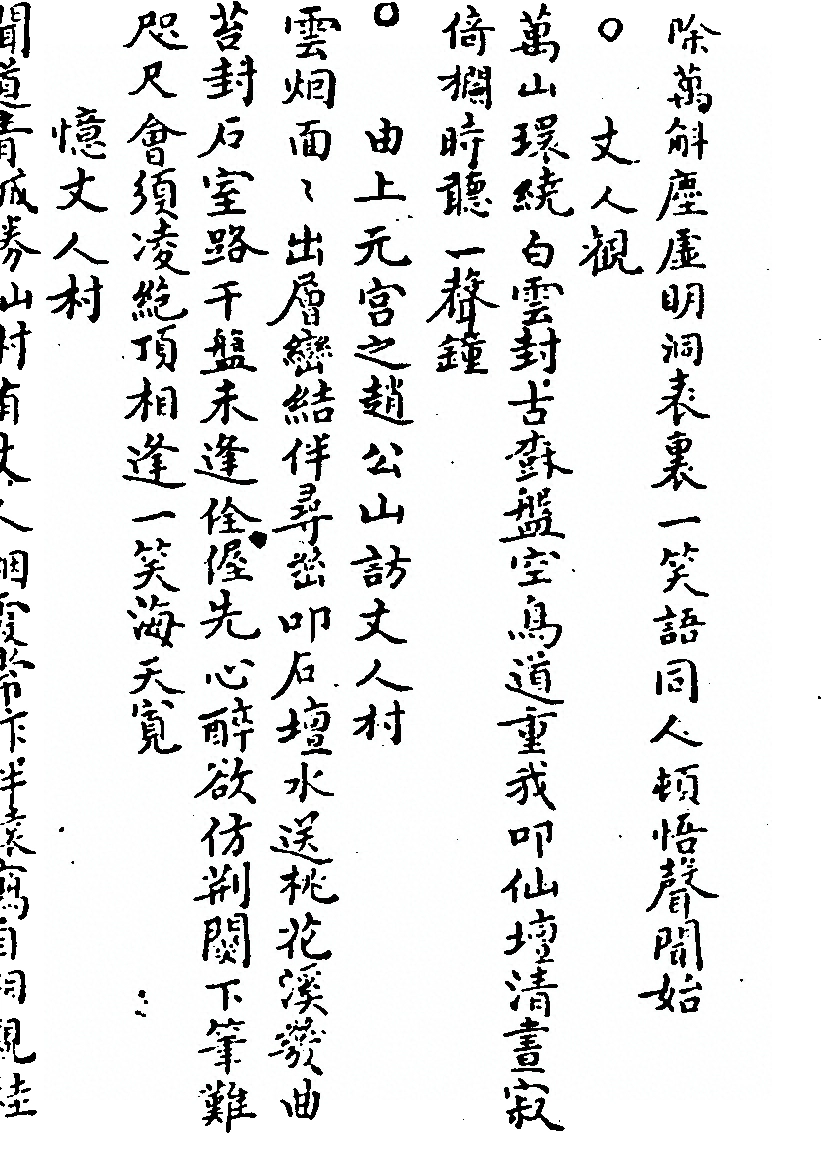 除萬斛塵虛明洞表裏一笑語同人頓悟聲聞始
○ 丈人觀
萬山環繞白雲封古森盤空鳥道重我叩仙壇清晝寂
倚欄時聽一聲鐘
○ 由上元宮之趙公山訪丈人村
雲烟面〻出層巒結伴尋出叩石壇水送桃花溪幾曲
苔封石室路千盤未逢佺偓先心醉欲仿荆關下筆難
咫尺會須凌絕頂相逢一笑海天寬
憶丈人村
聞道青城勝山村有丈人烟霞常 伴猿 自相親